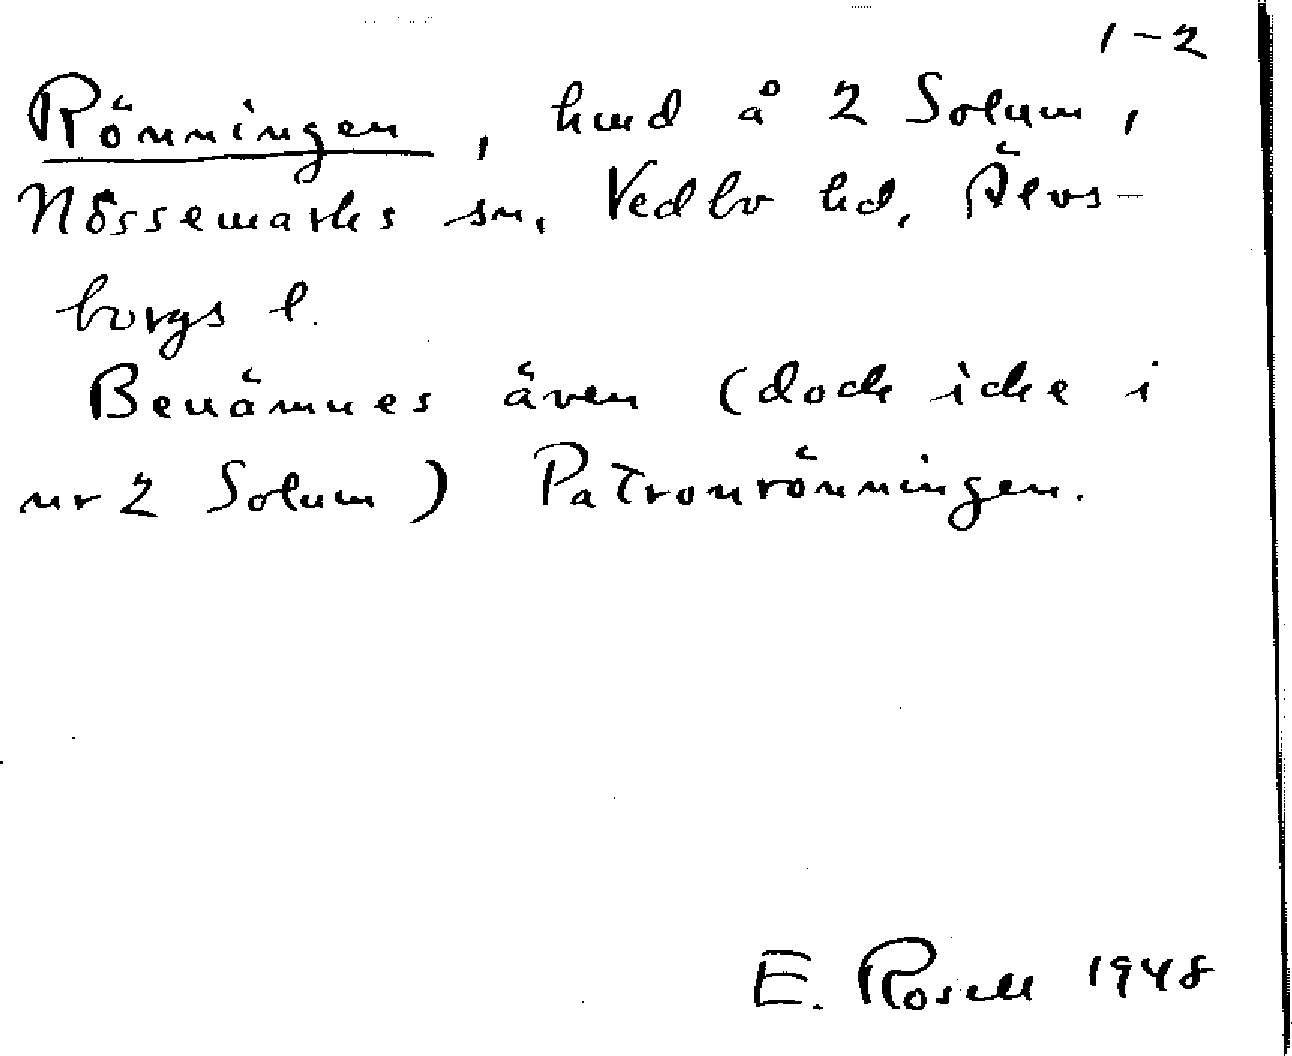 1-2
Rönningen, hmd å 2 Solum,
Nössemarks sn, Vedbo hd, Älvs-
borgs l.
Benämnes även (dock icke i
nr 2 Solum) Patronrönningen.
E. Rosell 1948